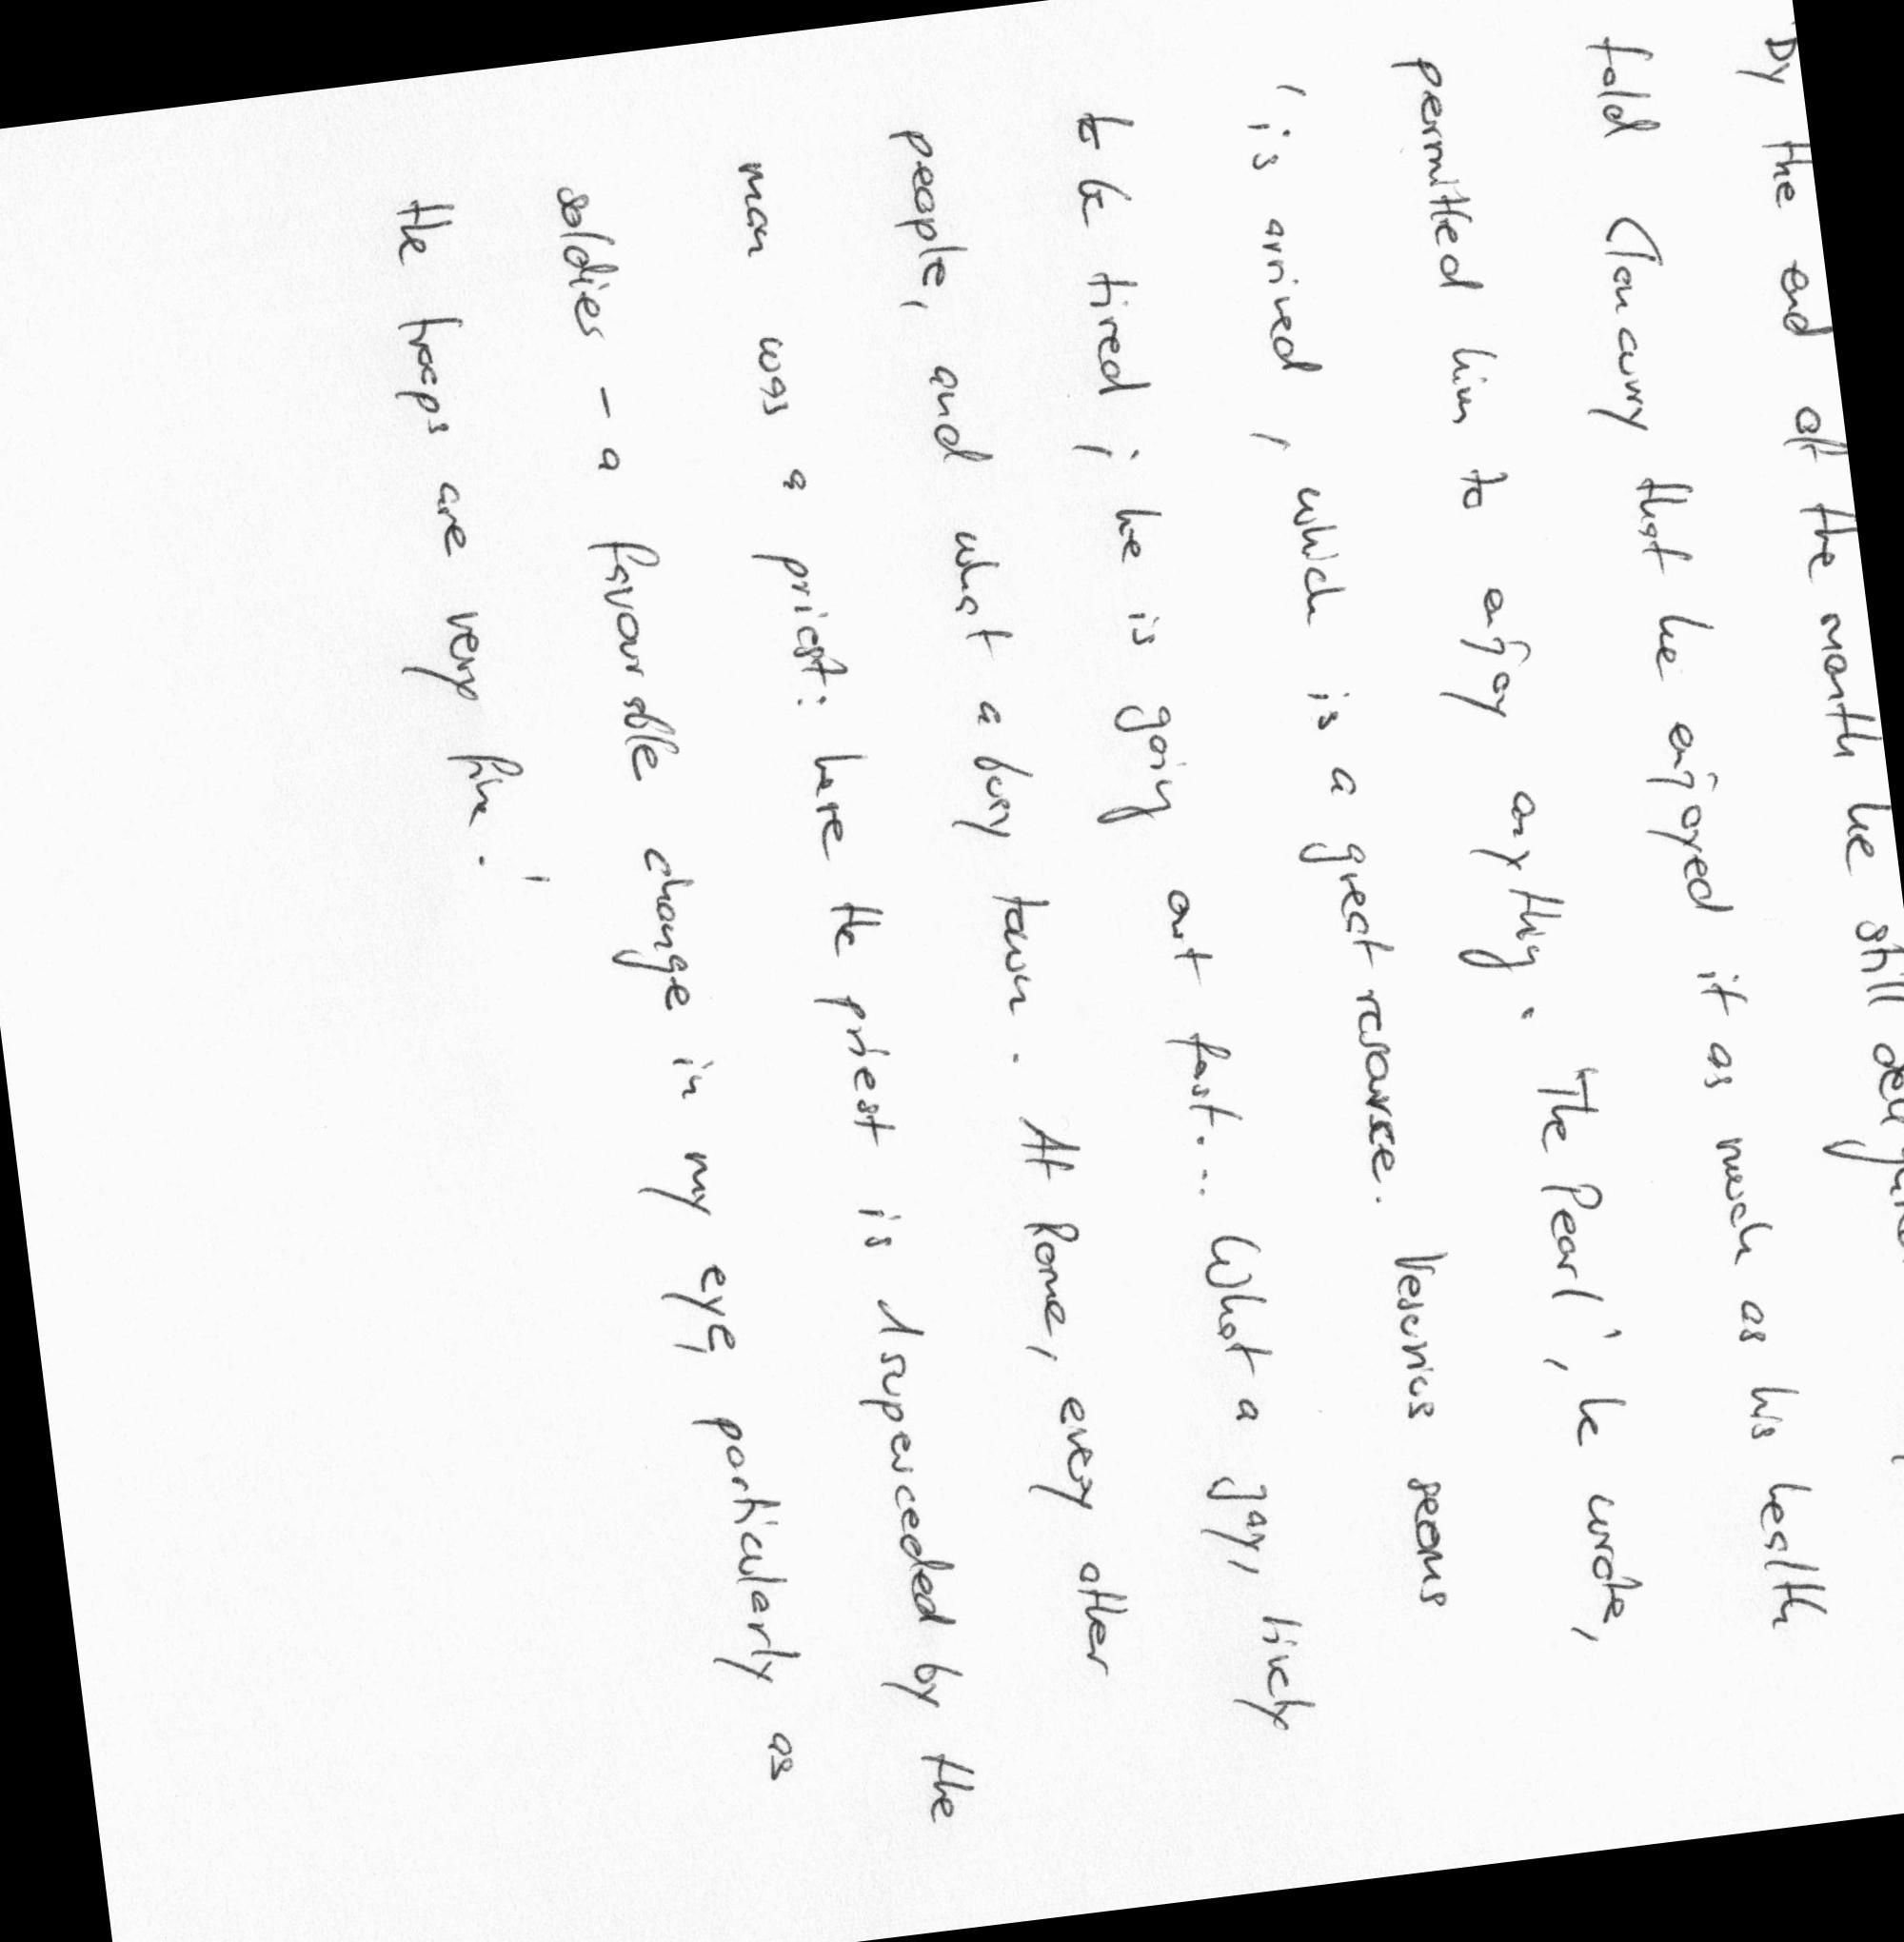 By the end of the month he still
told Clancarry that he enjoyed it as much as his health
permitted him to enjoy anything. The Pearl', he wrote,
' is arrived, which is a great resource. Vesuvius seems
to be tired; he is going out fast... What a gay, lively
people, and what a busy town. At Rome, every other
man was a priest: here the priest is superceded by the
soldies - a favourable change in my eye, particularly as
the troops are very fine. '